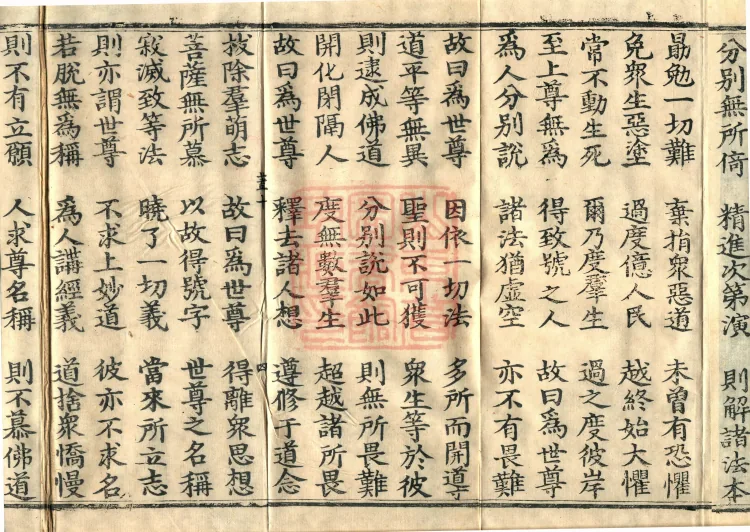 分別無所倚 精進次第演 則解諸法本
勗勉一切難 棄捐衆惡道 未曽有恐懼
免衆生惡塗 過度億人民 越終始大懼
常不動生死 爾乃度羣生 過之度彼岸
至上尊無爲 得致號之人 故曰爲世尊
爲人分別說 諸法猶虛空 亦不有畏難
故曰爲世尊 因依一切法 多所而開導
道平等無異 聖則不可獲 衆生等於彼
則逮成佛道 分別說如此 則無所畏難
開化閉隔人 度無數羣生 超越諸所畏
故曰爲世尊 釋去諸人想 遵修于道念
拔除羣萌志 故曰爲世尊 得離衆思想
菩薩無所慕 以故得號字 世尊之名稱
寂滅致等法 曉了一切義 當來所立志
則亦謂世尊 不求上妙道 彼亦不求名
若脫無爲稱 爲人講經義 道捨衆憍慢
則不有立願 人求尊名稱 則不慕佛道